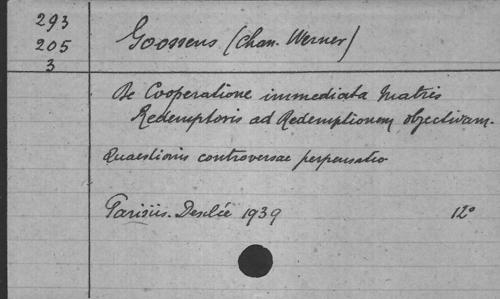 293
205
3
Goossens (Chan. Werner)
De Cooperatione immediata Matris
Redemptoris ad Redemptionem objectivam.
Quaestionis controversae perpensatio
Parisiis. Desclée 1939 12°